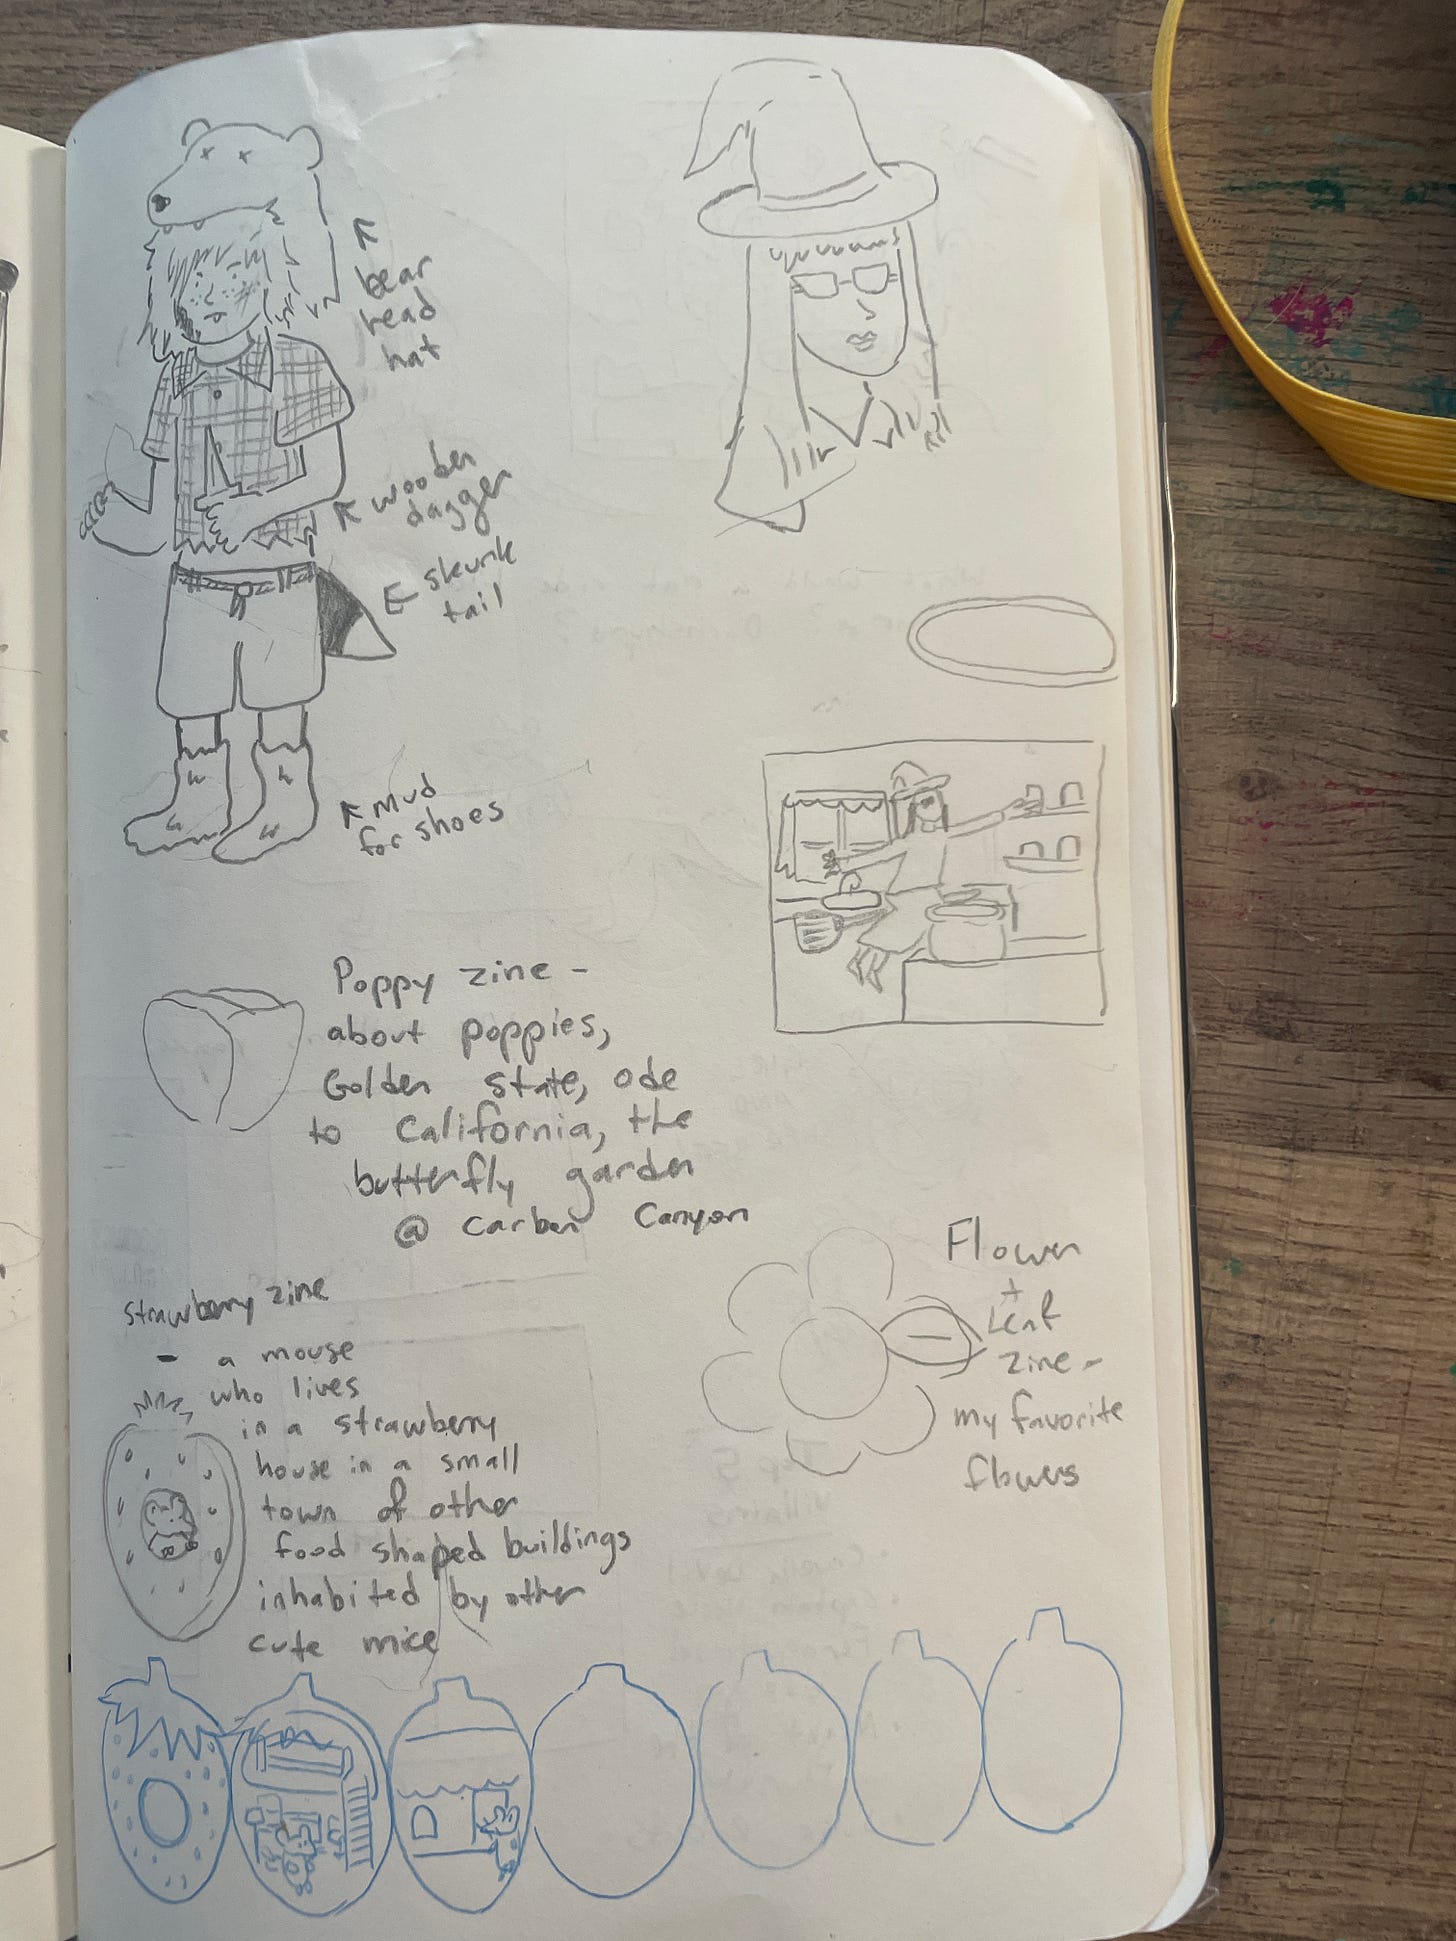 bear
head
hat
wooden
dagger
skunk
tail
mud
for shoes
Poppy zine -
about poppies,
Golden state, ode
to California, the
butterfly garden
@ Carbon Canyon
Strawberry zine
- a mouse
who lives
in a strawberry
house in a small
town of other
food shaped buildings
inhabited by other
cute mice
Flower
+
Leaf
zine -
my favorite
flowers